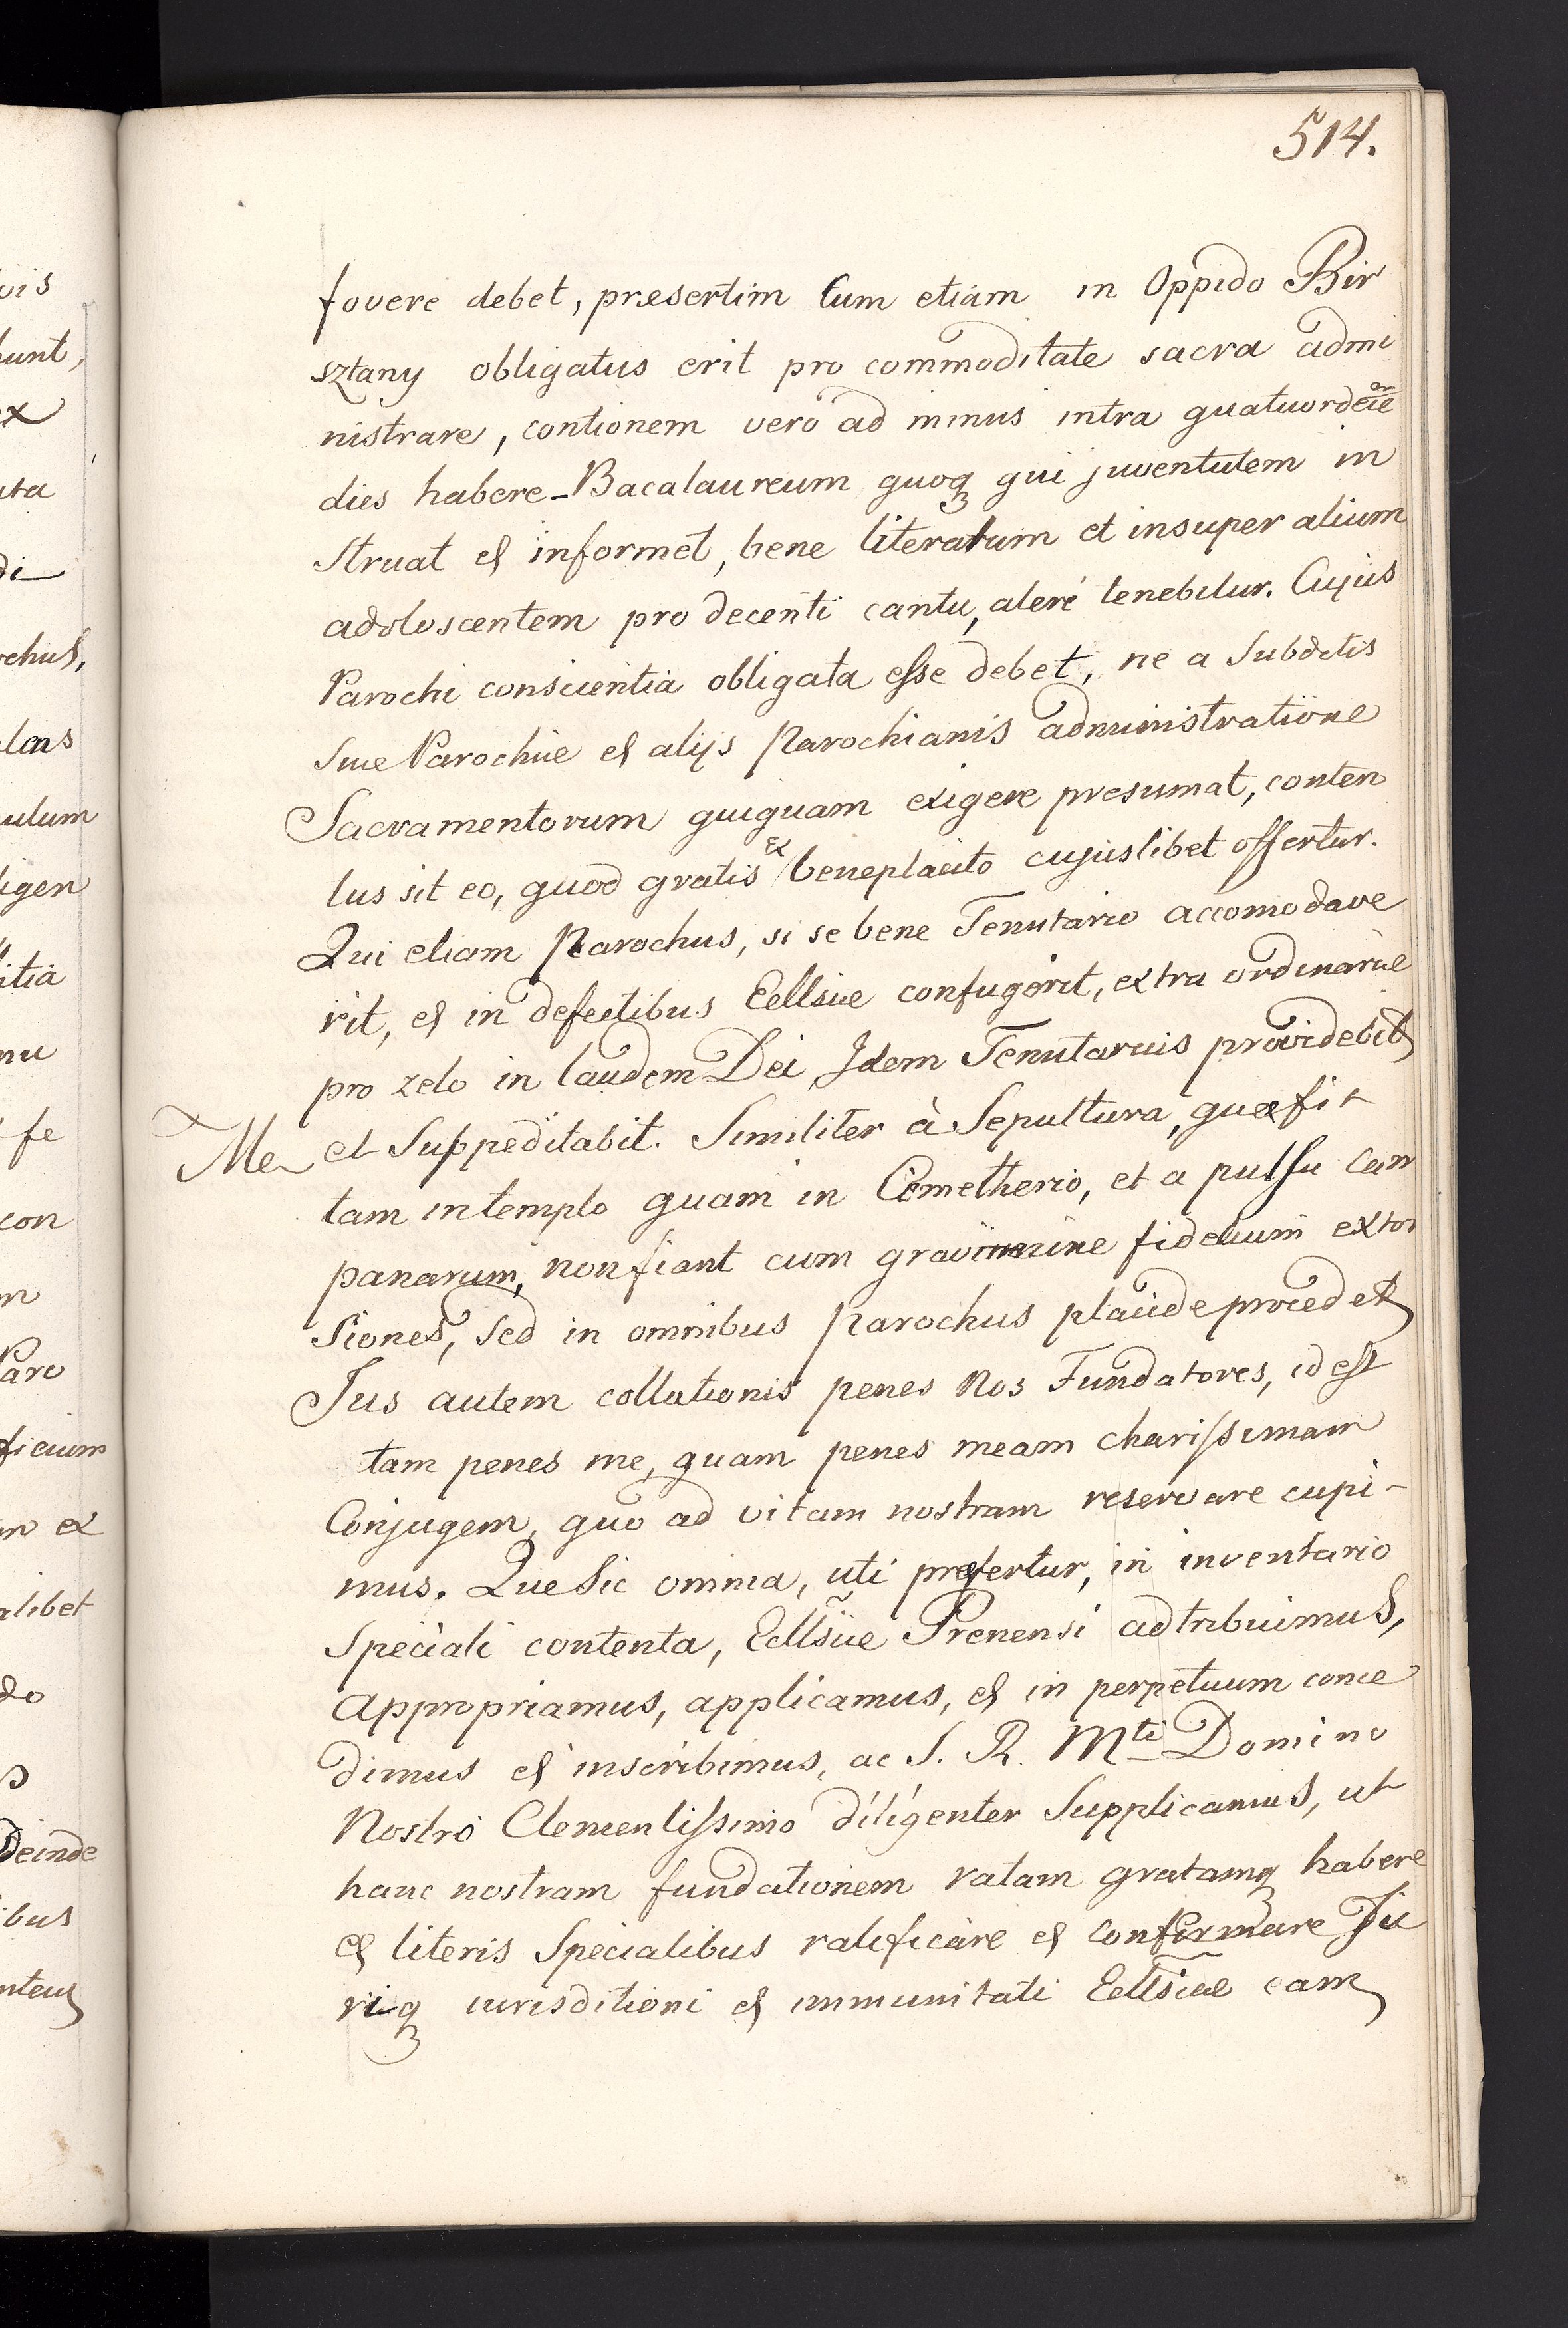 514.
fovere debet, præsertim Cum etiam in Oppido Bir
sztany obligatus erit pro commoditate sacra admi
nistrare, contionem vero ad minus intra quatuordecie
dies habere_Bacalaureum quoq qui juventutem in
struat et informet, bene literatum et insuper alium
adoloscentem pro decenti cantu, alere tenebitur. Cujus
Parochi conscientia obligata esse debet, ne a Subdetis
Suæ Parochiæ et alijs Parochianis administratione
Sacramentorum quiquam exigere presumat, conten
tus sit eo, quod gratis ex beneplacito cujuslibet offertur.
Qui etiam Parochus, si se bene Tenutario accomodave
rit, et in defectibus Ecllsiæ confugerit, extra ordinarie
pro zelo in laudem Dei Idem Tenutarius providebit
Me et Suppeditabit. Similiter à Sepultura, quæ fit
tam in templo quam in Cemetherio, et a pulsu Cam
panarum, non fiant cum gravimine fidelium extor
siones, sed in omnibus Parochus placide procedet
Jus autem collationis penes Nos Fundatores, id est
tam penes me, quam penes meam charissimam
Conjugem, quo ad vitam nostram reservare cupi-
mus. Que Sic omnia, uti prefertur, in inventario
Speciali contenta, Ecllsiæ Prenensi adtribuimus,
appropriamus, applicamus, et in perpetuum conce
dimus et inscribimus, ac S. R. Mti Domino
Nostro Clementissimo diligenter Supplicamus, ut
hanc nostram fundationem ratam gratamq habere
et literis Specialibus ratificare et confirmare Ju
riq iurisditioni et immunitati Ecllsiæ eam